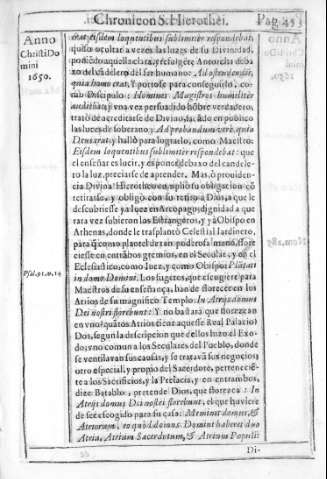 Chronicon S. Hierothei. Pag. 453
Anno
Christi Do
mini
1650.
erat; eisdem loquentibus sublimiter respondebat;
quiso ocultar a vezes las luzes de su Divinidad,
poniẽdo aquella clara, y refulgẽte Antorcha deba-
xo del cãdelero del ser humano: Ad ostendendũ,
quia homo erat. Y portose para conseguirlo, co-
mo Discipulo: Homines Magistros humiliter
audiebat; y una vez persuadido hõbre verdadero,
tratò de acreditarse de Divino, sacãdo en publico
las luces de soberano: Ad probandum verè, quia
Deus erat; y hallò para lograrlo, como Maestro:
Eisdem loquentibus sublimiter respondebat: que
el enseñar es lucir, y es poner debaxo del candele-
ro la luz, preciarse de aprender. Mas, ò providen-
cia Divina! Hierotheo en
tirarse, y obligò con su retiro a Dios, a que le
descubriesse ya luz en Areopago, dignidad a que
rara vez subieron los Estrangeros, y ya Obispo en
Athenas, donde le trasplantò Celestial Jardinero,
para q̃ como plantel de tan poderosa mano, flore
ciesse en entrãbos gremios, en el Secular, y en el
Eclesiastico, como Juez, y como Obispo: Plãtat
in domo Domini. Los sugetos, que escogiere para
Psal. 91. v. 14
Maestros de su enseñança, han de florecer en los
Atrios de su magnifico Templo: In Atrijs domus
Dei nostri florebunt: Y no bastarà que florezcan
en uno: quãtos Atrios tiene aquesse Real Palacio?
Dos, segun la descripcion que dellos hizo el Exo-
do, uno comun a los Seculares del Pueblo, donde
se ventilavan sus causas, y se tratavã sus negocios;
otro especial, y propio del Sacerdote, perteneciẽ-
te a los Sacrificios, y la Prelacia, y en entrambos,
dize Batablo, pretende Dios, que florezca: In
Atrijs domus Dei nostri florebunt, el que huviere
de ser escogido para su casa: Meminit domus, &
Atriorum, eo quòd domus Domini haberet duo
Atria, Atrium Sacerdotum, & Atrium Populi:
Di-